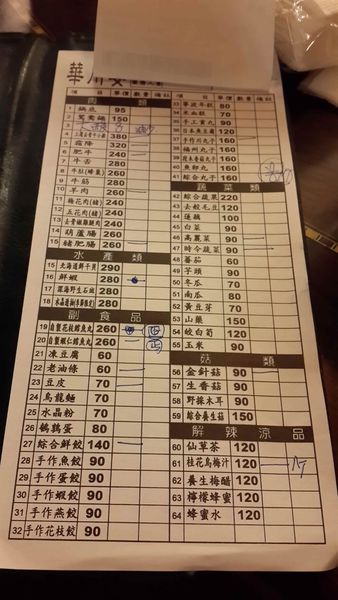 項 目 單價 數量 備註
肉 類
1 鍋底 95
2 鴛鴦鍋 150
5 霜降 320
6 肥牛 240
7 牛舌 280
9 牛筋 280
10 羊肉 260
11 梅花肉(豬) 240
12 五花肉(豬) 240
14 葫蘆腸 260
15 豬肥腸 260
水 產 類
15 北海道鮮干貝 290
16 鮮蝦 280
17 深海野生石斑 280
副 食 品
19 自製花枝鱈魚丸 260
20 自製蝦仁鱈魚丸 260
21 凍豆腐 60
22 老油條 60
23 豆皮 70
24 烏龍麵 70
25 水晶粉 70
26 鵪鶉蛋 80
27 綜合鮮餃 140
28 手作魚餃 90
29 手作蛋餃 90
30 手作蝦餃 90
31 手作燕餃 90
32 手作花枝餃 90
項 目 單價 數量 備註
33 寧波年糕 80
34 米血糕 70
35 手工寬丸 90
36 日本魚豆腐 120
38 福州丸子 160
40 魚卵丸 160
41 綜合丸子 160
蔬 菜 類
42 綜合蔬菜 220
43 去殼毛豆 120
44 蓮藕 100
45 白菜 90
46 高麗菜 90
47 時令蔬菜 90
48 番茄 60
49 芋頭 90
50 冬瓜 70
51 南瓜 80
52 黃豆芽 70
53 山藥 150
54 茭白筍 120
55 玉米 90
菇 類
56 金針菇 90
57 生香菇 90
58 野採木耳 90
59 綜合養生菇 150
解 辣 涼 品
60 仙草茶 120
61 桂花烏梅汁 120
62 養生梅醋 120
63 檸檬蜂蜜 120
64 蜂蜜水 120